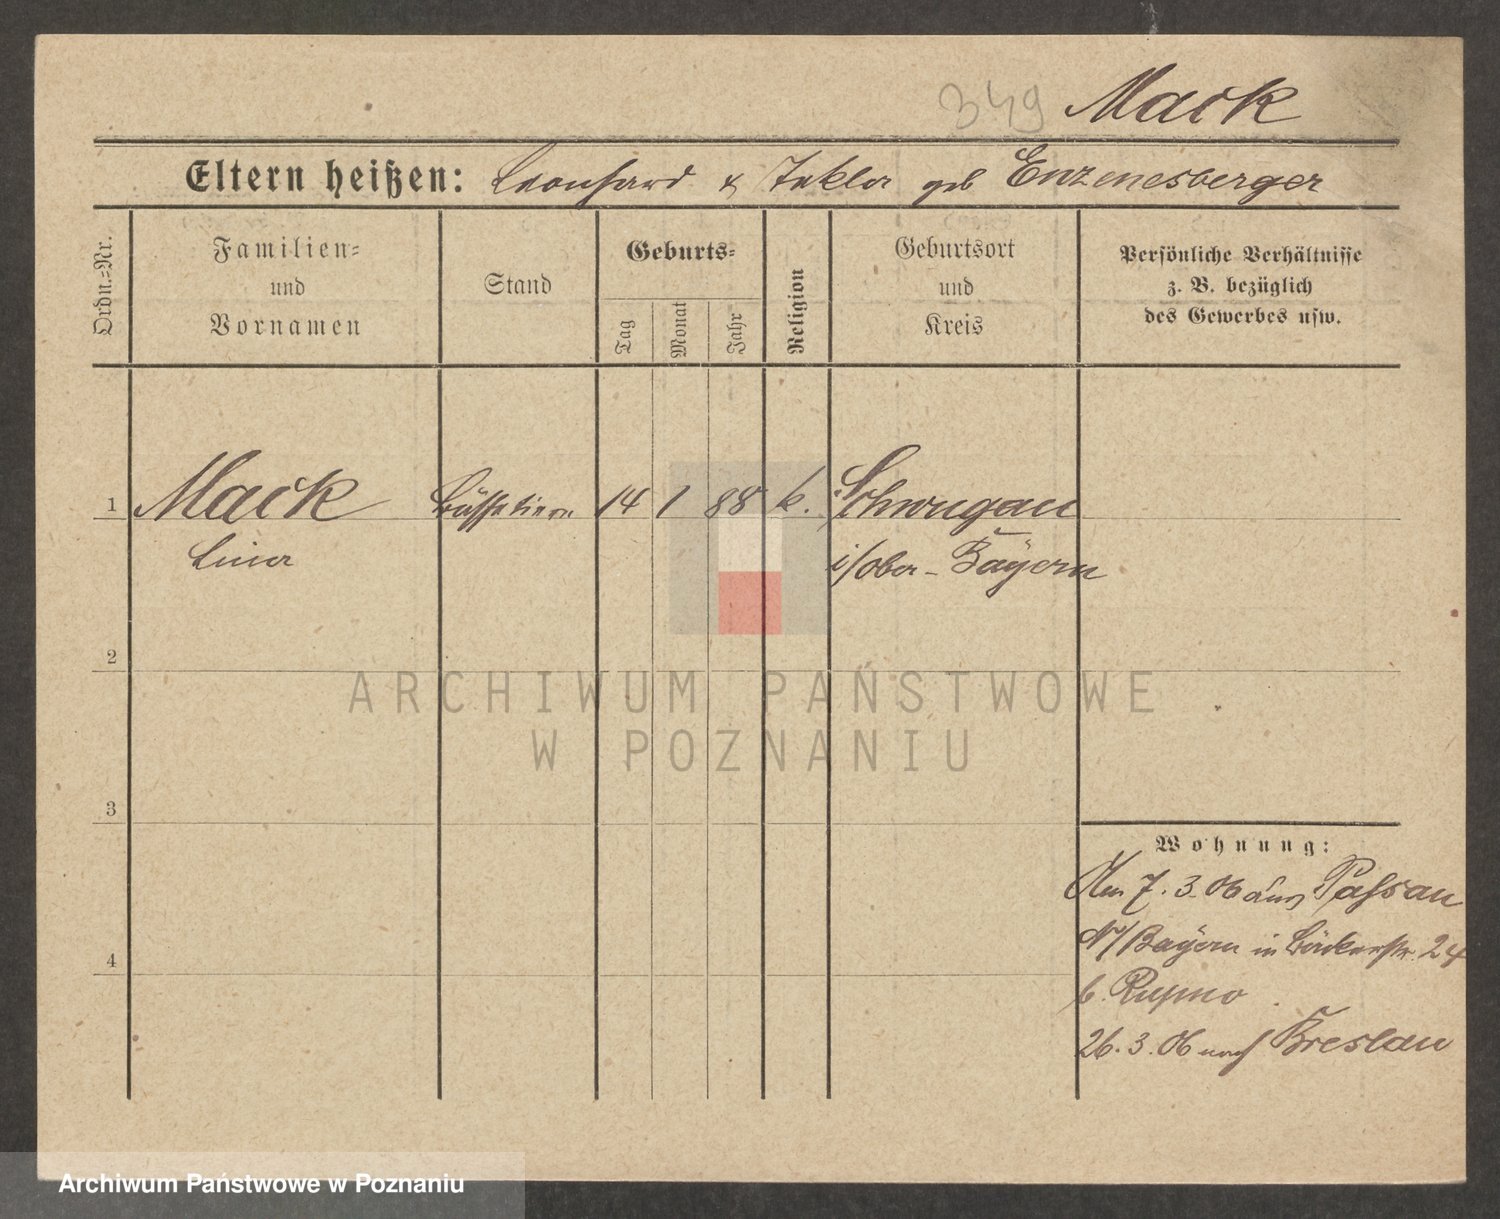 349 Mack
Eltern heißen: Leonhard & Tekla geb Enzenesberger
Ordn.=Nr.
Familien=
und
Vornamen
Stand
Geburts=
Tag
Monat
Jahr
Religion
Geburtsort
und
Kreis
Persönliche Verhältnisse
z. B. bezüglich
des Gewerbes usw.
1 Mack Büffetiern 14 1 88 k. Schwugau
Lina i/ober-Bayern
2
ARCHIWUM PAŃSTWOWE
W POZNANIU
3
Wohnung:
Am 7. 3. 06 aus Passau
N/Bayern in Bäckerstr. 24
4
b.
26. 3. 06 nach Breslau
Archiwum Państwowe w Poznaniu